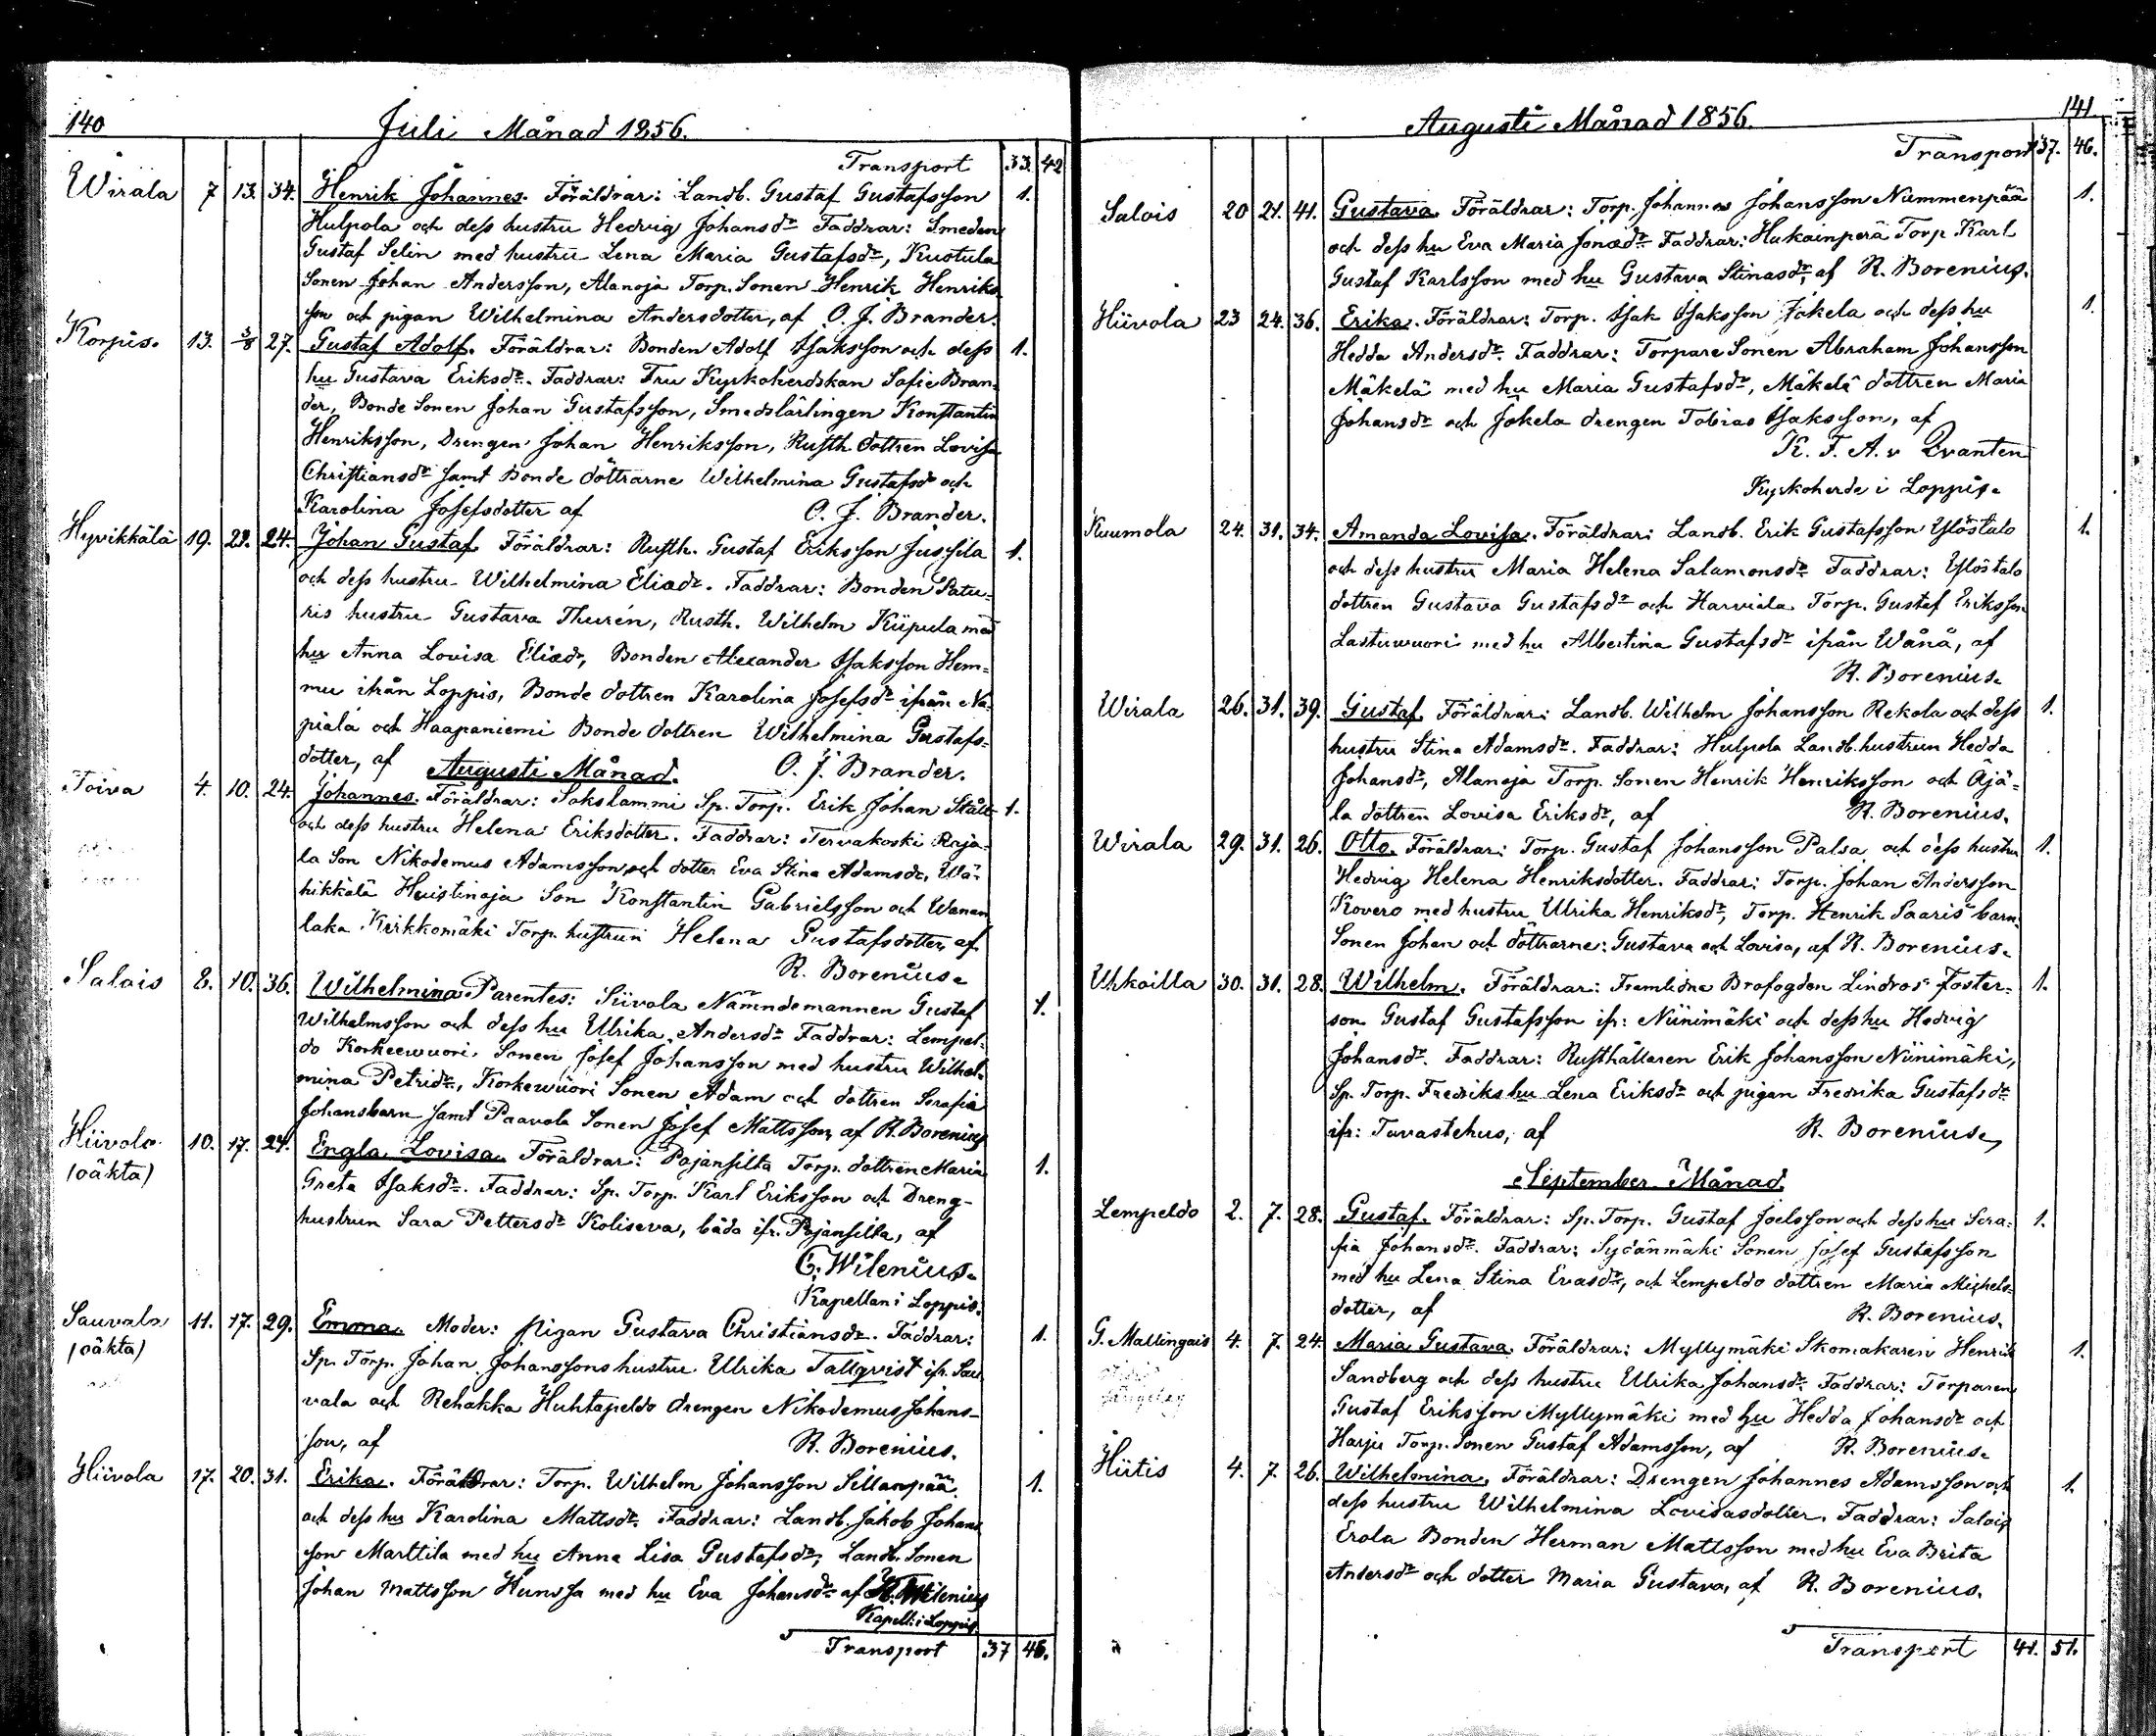 140
Juli Månad 1856.
Transport 33. 42
Wirala 7 13. 34. Henrik Johannes. Föräldrar: Landb. Gustaf Gustafsson 1.
Hulpola och dess hustru Hedvig Johansdr Faddrar: Smeden
Gustaf Selin med hustru Lena Maria Gustafsdr, Kuotula
Sonen Johan Andersson, Alanoja Torp. Sonen Henrik Henriks
son och pigan Wilhelmina Andersdotter, af O. J. Brander.
Korpis. 13. 3/8 27. Gustaf Adolf. Föräldrar: Bonden Adolf Isaksson och dess 1.
hu Gustava Eriksdr. Faddrar: Fru Kyrkoherdskan Sofie Bran-
der, Bonde Sonen Johan Gustafsson, Smedslärlingen Konstantin
Henriksson, Drengen Johan Henriksson, Rusth dottren Lovisa
Christiansdr samt Bonde döttrarne Wilhelmina Gustafsdr och
Karolina Josefsdotter af O. J. Brander.
Hyvikkälä 19. 22. 24. Johan Gustaf. Föräldrar: Rusth. Gustaf Eriksson Jussila 1.
och dess hustru Wilhelmina Eliædr. Faddrar: Bonden Patu-
ris hustru Gustava Thurén, Rusth. Wilhelm Kiipula med
hu Anna Lovisa Eliædr, Bonden Alexander Isaksson Hem-
mu ifrån Loppis, Bonde dottren Karolina Josefsdr ifrån Na-
piala och Haapaniemi Bonde dottren Wilhelmina Gustafs-
dotter, af O. J. Brander.
Augusti Månad.
Toiva 4. 10. 24. Johannes. Föräldrar: Sakslammi Sp. Torp. Erik Johan Stålt 1.
och dess hustru Helena Eriksdotter. Faddrar: Tervakoski Raja-
la Son Nikodemus Adamsson och dotter Eva Stina Adamsdr, Wä-
hikkälä Huistinoja Son Konstantin Gabrielsson och Wanan
laka Kirkkomäki Torp. hustrun Helena Gustafsdotter, af
R. Borenius.
Salois 8. 10. 36. Wilhelmina Parentes: Siivola Nämndemannen Gustaf 1.
Wilhelmsson och dess hu Ulrika Andersdr Faddrar: Lempel-
do Korkeewuori Sonen Josef Johansson med hustru Wilhel-
mina Petridr, Korkewuori Sonen Adam och dottren Serafia
Johansbarn samt Paavola Sonen Josef Mattsson, af R. Borenius
Hiivola 10. 17. 24. Engla Lovisa. Föräldrar: Pajansilta Torp. dottren Maria 1.
(oäkta)
Greta Isaksdr. Faddrar: Sp. Torp. Karl Eriksson och Dreng-
hustrun Sara Pettersdr Koliseva, båda ifr. Pajansilta, af
C. Wilenius.
Kapellan i Loppis.
Sauvala 11. 17. 29. Emma. Moder: pigan Gustava Christiansdr. Faddrar: 1.
(oäkta)
Sp. Torp. Johan Johanssons hustru Ulrika Tallqvist ifr. Sau
vala och Rehakka Huhtapeldo drengen Nikodemus Johans-
son, af R. Borenius.
Hiivola 17. 20. 31. Erika. Föräldrar: Torp. Wilhelm Johansson Sillanpää 1.
och dess hu Karolina Mattsdr. Faddrar: Landb. Jakob Johans
son Marttila med hu Anna Lisa Gustafsdr, Landb. Sonen
Johan Mattsson Hunssa med hu Eva Johansdr af Wilenius
Kapell. i Loppis.
Transport 37 46.
141.
Augusti Månad 1856.
Transport 37. 46.
Salois 20 21. 41. Gustava. Föräldrar: Torp. Johannes Johansson Nummenpää 1.
och dess hu Eva Maria Jonædr Faddrar: Hukainperä Torp Karl
Gustaf Karlsson med hu Gustava Stinasdr, af R. Borenius.
Hiivola 23 24. 36. Erika. Föräldrar: Torp. Isak Isaksson Jokela och dess hu 1.
Hedda Andersdr. Faddrar: Torpare Sonen Abraham Johansson
Mäkelä med hu Maria Gustafsdr, Mäkelä dottren Maria
Johansdr och Jokela drengen Tobias Isaksson, af
K. F. A. v Qvanten
Kyrkoherde i Loppis.
Kuumola 24. 31. 34. Amanda Lovisa. Föräldrar: Landb. Erik Gustafsson Ylöstalo 1.
och dess hustru Maria Helena Salamonsdr Faddrar: Ylöstalo
dottren Gustava Gustafsdr och Harviala Torp. Gustaf Eriksson
Lastuwuori med hu Albertina Gustafsdr ifrån Wånå, af
R. Borenius.
Wirala 26. 31. 39. Gustaf. Föräldrar: Landb. Wilhelm Johansson Rekola och dess 1.
hustru Stina Adamsdr. Faddrar: Hulpola Landb. hustrun Hedda
Johansdr, Alanoja Torp. Sonen Henrik Henriksson och Äjä-
la dottren Lovisa Eriksdr, af R. Borenius.
Wirala 29. 31. 26. Otto. Föräldrar: Torp. Gustaf Johansson Palsa och dess hustru 1.
Hedvig Helena Henriksdotter. Faddrar: Torp. Johan Andersson
Kovero med hustru Ulrika Henriksdr, Torp. Henrik Saaris barn
Sonen Johan och döttrarne: Gustava och Lovisa, af R. Borenius.
Uhkoilla 30. 31. 28. Wilhelm. Föräldrar: Fremlidne Brofogden Lindros' foster- 1.
son Gustaf Gustafsson ifr: Niinimäki och dess hu Hedvig
Johansdr. Faddrar: Rusthållaren Erik Johansson Niinimäki,
Sp. Torp. Fredriks hu Lena Eriksdr och pigan Fredrika Gustafsdr
ifr: Tavastehus, af R. Borenius.
September Månad
Lempeldo 2. 7. 28. Gustaf. Föräldrar: Sp. Torp. Gustaf Joelsson och dess hu Sera- 1.
fia Johansdr. Faddrar: Sydänmäki Sonen Josef Gustafsson
med hu Lena Stina Evasdr, och Lempeldo dottren Maria Michels-
dotter, af R. Borenius.
G. Mallingais 4. 7. 24. Maria Gustava. Föräldrar: Myllymäki Skomakaren Henrik 1.
Sandberg och dess hustru Ulrika Johansdr. Faddrar: Torparen
Gustaf Eriksson Myllymäki med hu Hedda Johansdr och
Harju Torp. Sonen Gustaf Adamsson, af R. Borenius.
Hiitis 4. 7. 26. Wilhelmina. Föräldrar: Drengen Johannes Adamsson och 1.
dess hustru Wilhelmina Lovisasdotter. Faddrar: Salois
Erola Bonden Herman Mattsson med hu Eva Brita
Andersdr och dotter Maria Gustava, af R. Borenius.
Transport 41. 51.